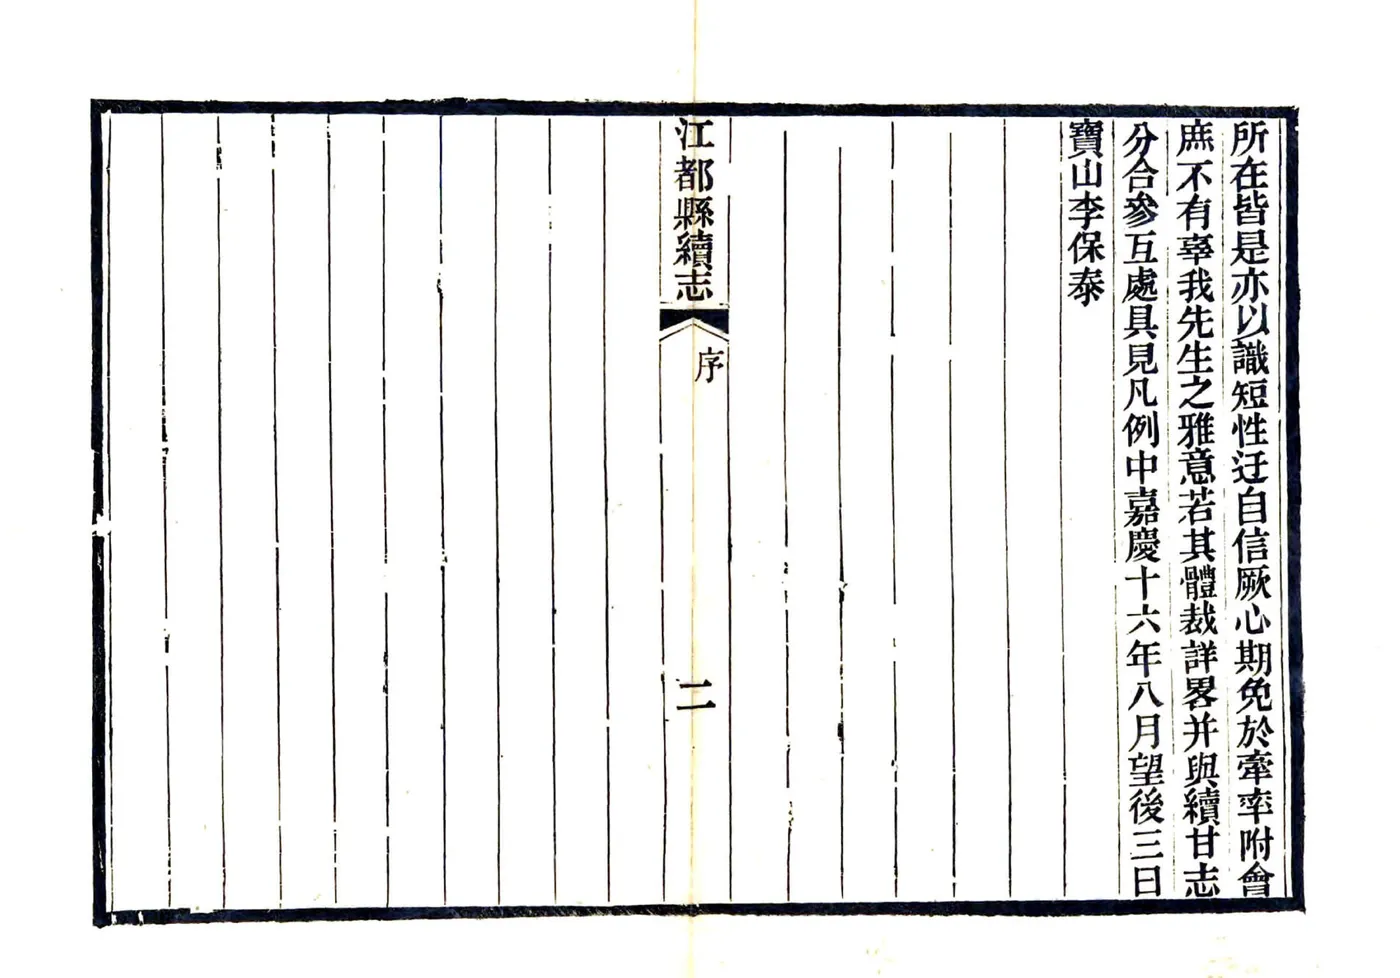 所在皆是亦以識短性迂自信厥心期免於牽率附會
庶不有辜我先生之雅意若其體裁詳畧并與續甘志
分合參互處具見凡例中嘉慶十六年八月望後三日
寶山李保泰
江都縣續志
序
二